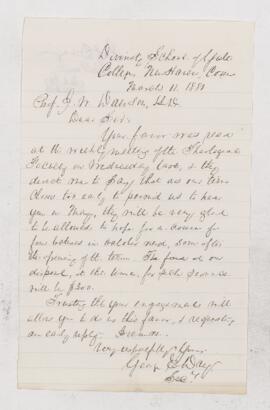 Divinity School of Yale
College, New Haven, Conn
March 11. 1880
Prof. J. W. Dawson, LL.D.
Dear Sir:
Your favor was read
at the weekly meeting of the Theological
Society on Wednesday last, & they
direct me to say that as our term
closes too early to permit us to hear
you in May, they will be very glad
to be allowed to hope for a course of
four lectures in October next, soon after
the opening of the term. The fund at our
disposal, at this time, for such services
will be $200.
Trusting that your engagements will
allow you to do us this favor, & requesting
an early reply, I remain
Very respectfully Yours,
George E. Day,
Sec'y.